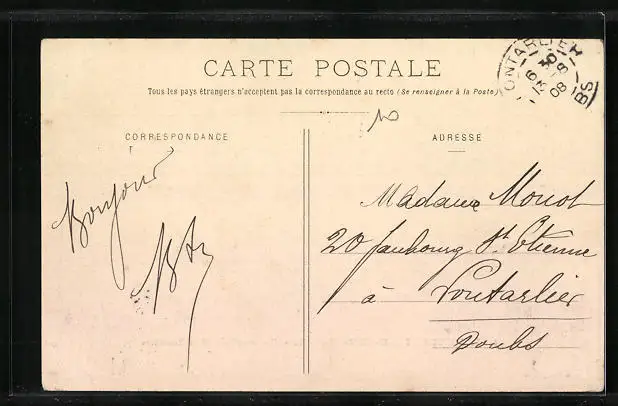 CARTE POSTALE
Tous les pays étrangers n'acceptent pas la correspondance au recto (Se renseigner à la Poste)
PONTARLIER
DOUBS
10
CORRESPONDANCE
ADRESSE
Bonjour
Madame Monot
20 faubourg St. Etienne
à Pontarlier
Doubs